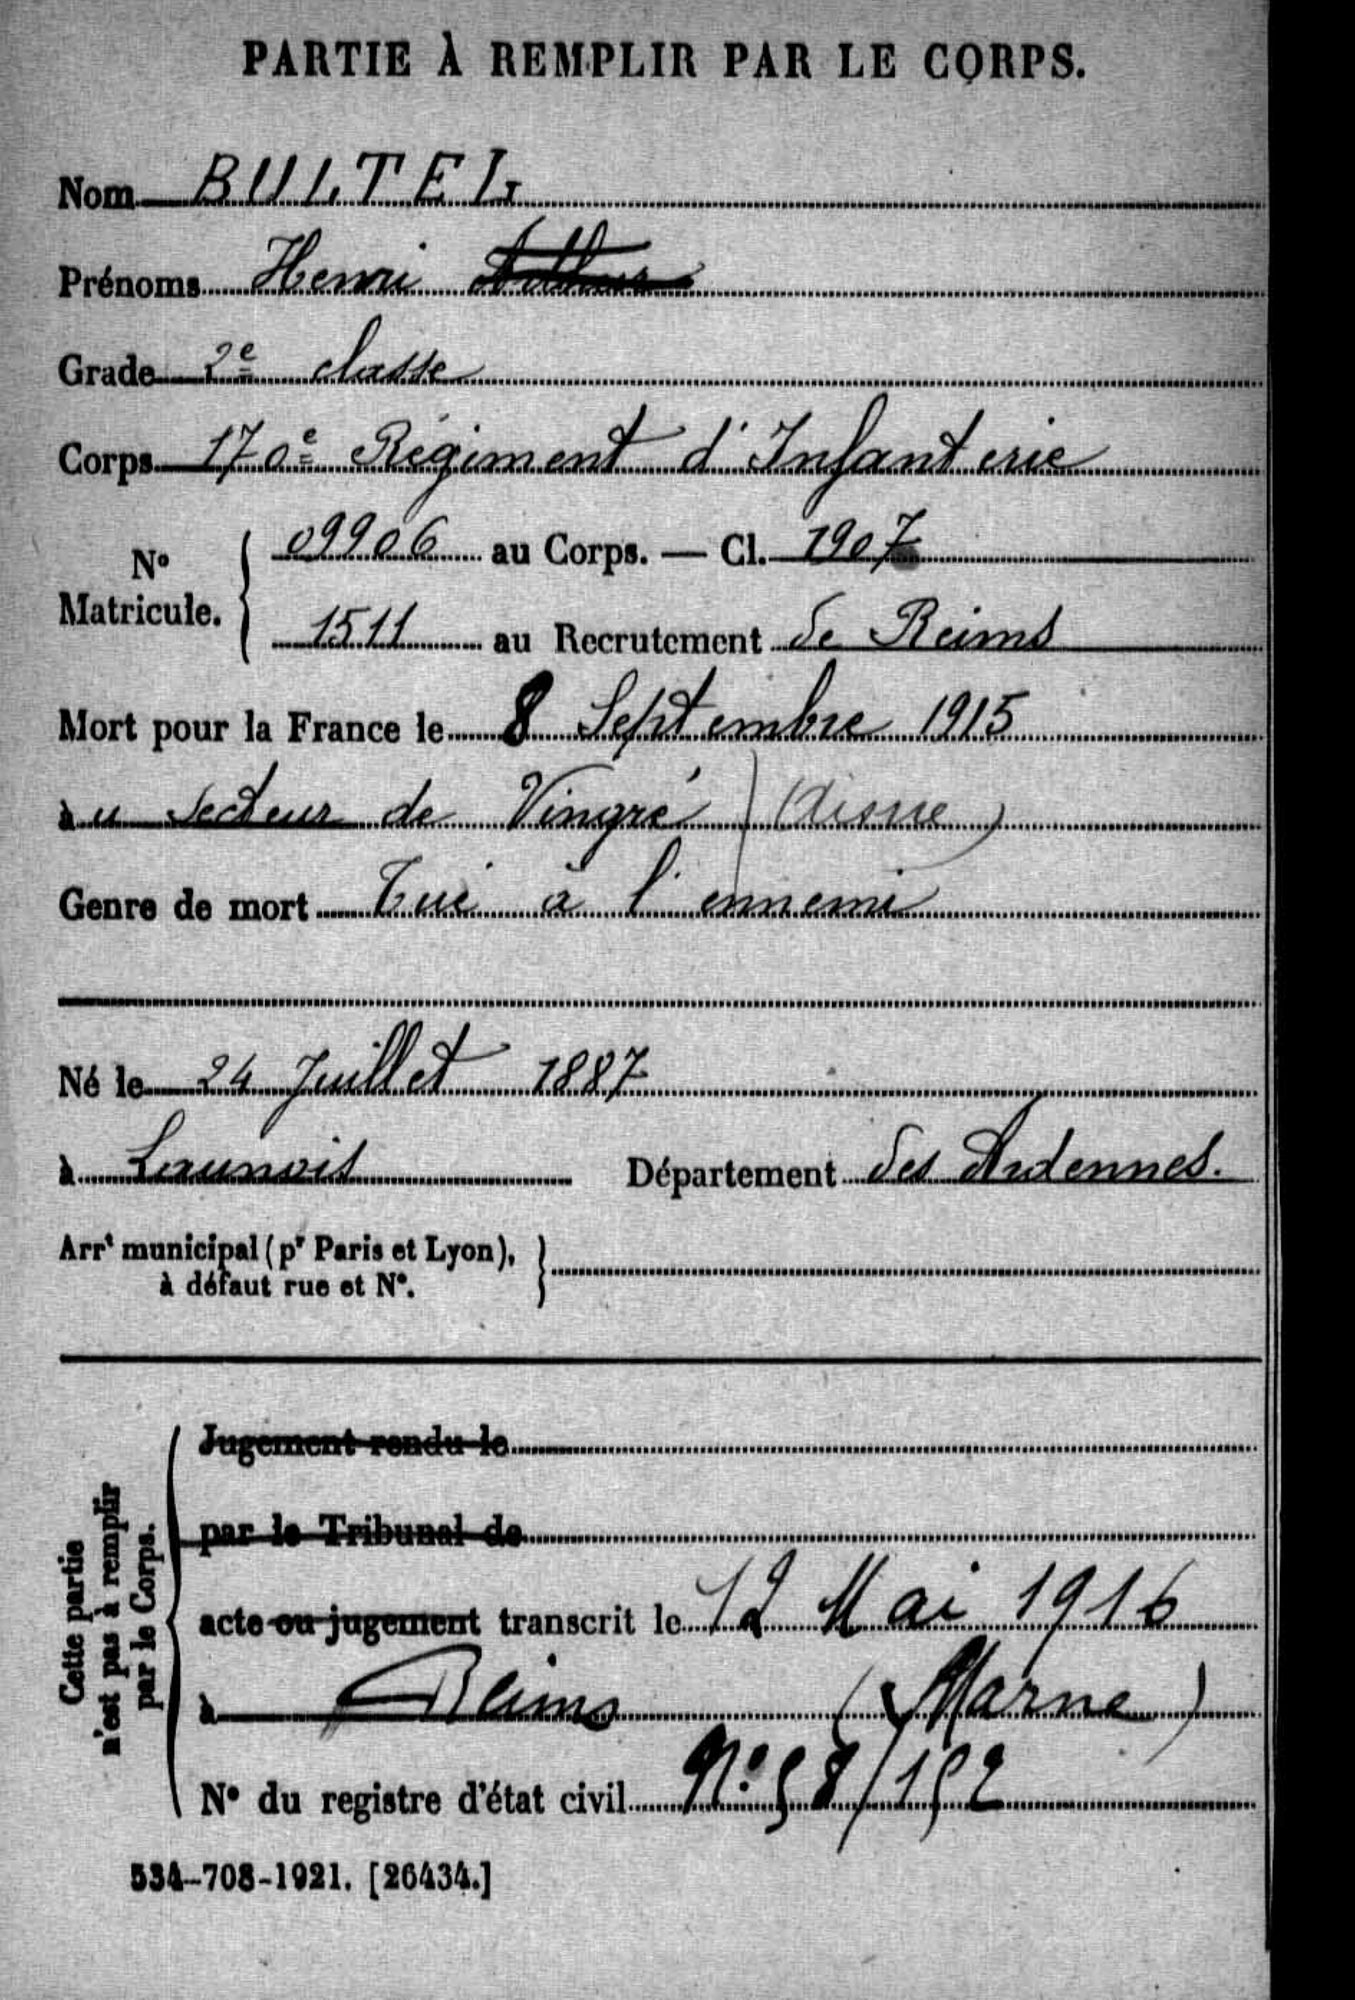 PARTIE À REMPLIR PAR LE CORPS.
Nom BULTEL
Prénoms Henri Arthur
Grade 2e classe
Corps 170e Régiment d'Infanterie
No Matricule. { 09906 au Corps. — Cl. 1907
1511 au Recrutement de Reims
Mort pour la France le 8 Septembre 1915
àu secteur de Vingré (Aisne)
Genre de mort Tué à l'ennemi
Né le 24 Juillet 1887
à Launois Département des Ardennes.
Arrt municipal (pr Paris et Lyon), }
à défaut rue et No.
Cette partie
n'est pas à remplir
par le Corps.
Jugement rendu le
par le Tribunal de
acte ou jugement transcrit le 12 Mai 1916
à Reims (Marne)
No du registre d'état civil No 58/152
534-708-1921. [26434.]